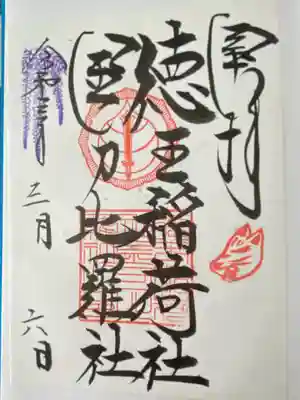 奉拝
徳王稲荷社
金刀比羅社
令和三年三月六日